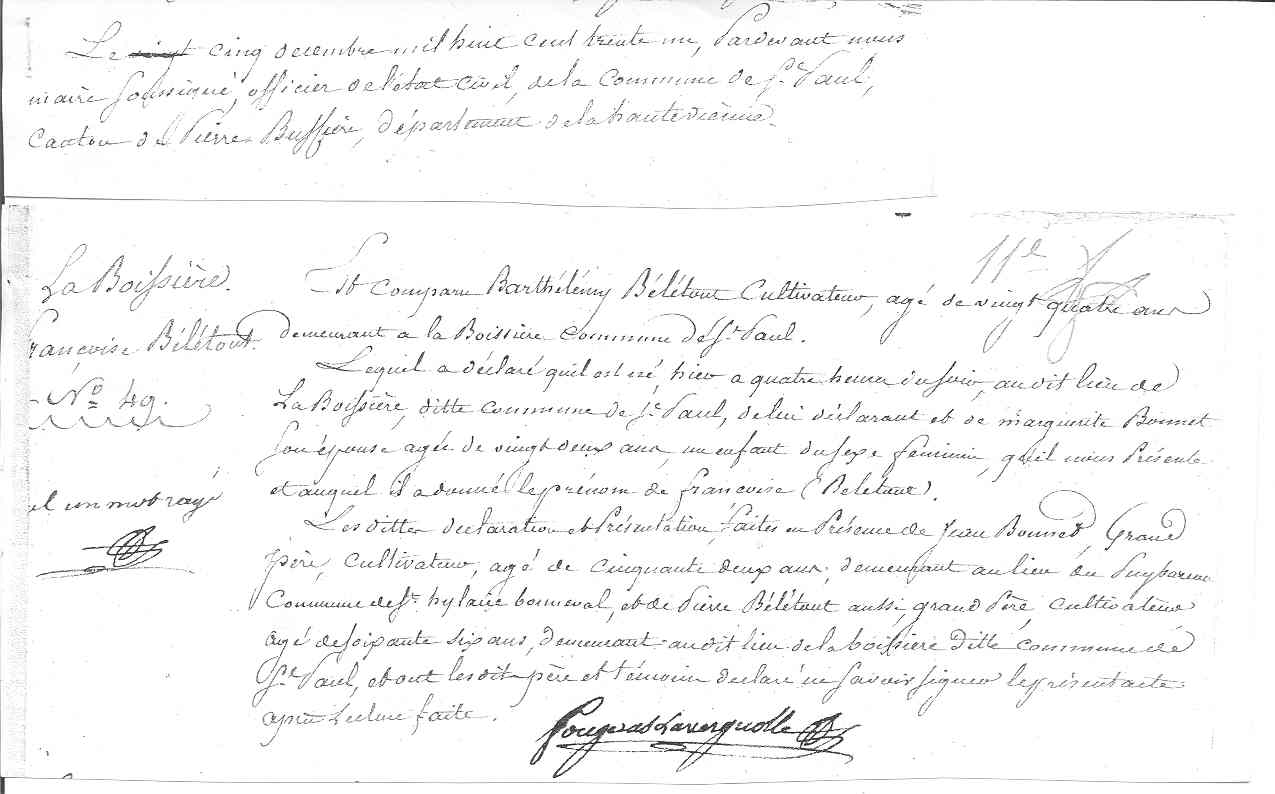 Le vingt cinq decembre mil huit cent trente un, Pardevant nous
maire soussigné, officier de l'état civil, de la Commune de St. Paul,
Canton de Pierre Buffière, département de la haute vienne.
La Boissière.
françoise Bélétout.
No 49.
un mot rayé
11e
Est comparu Barthélémy Bélétout Cultivateur, agé de vingt quatre ans
demeurant a la Boissière Commune dé St. Paul.
Lequel a déclaré quil est né, hier a quatre heures du soir, au dit lieu de
La Boissière, ditte commune de St. Paul, de lui déclarant et de marguerite Bonnet
son épouse agée de vingt deux ans, un enfant du sexe féminin, quil nous Présente
et auquel il a donné le prénom de françoise (Beletout).
Les dittes declaration et Présentation, faites en Présence de Jean Bonnet, Grand
père, Cultivateur, agé de cinquante deux ans, demeurant au lieu du
Commune de St. hylaire bonneval, et de Pierre Bélétout aussi, grand Père, cultivateur
agé de soixante six ans, demeurant au dit lieu de la boissiere Ditte commune de
St. Paul, et ont les dits père et témoins declaré ne savoir signer le présent acte
après Lecture faite.